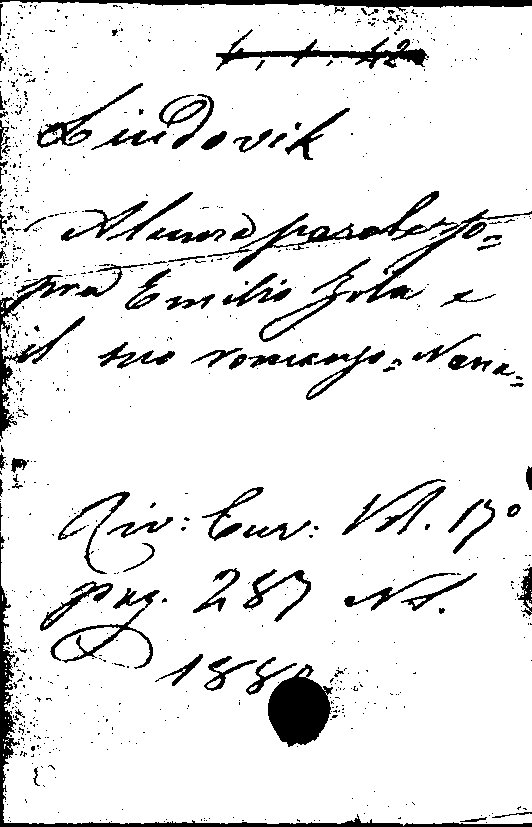 1. 1. 42
Lindovik
Alcune parole so=
pra Emilio Zola e
il suo romanzo = Nana =
Riv: Eur: Vol. 17º
pag. 287 NS.
1880